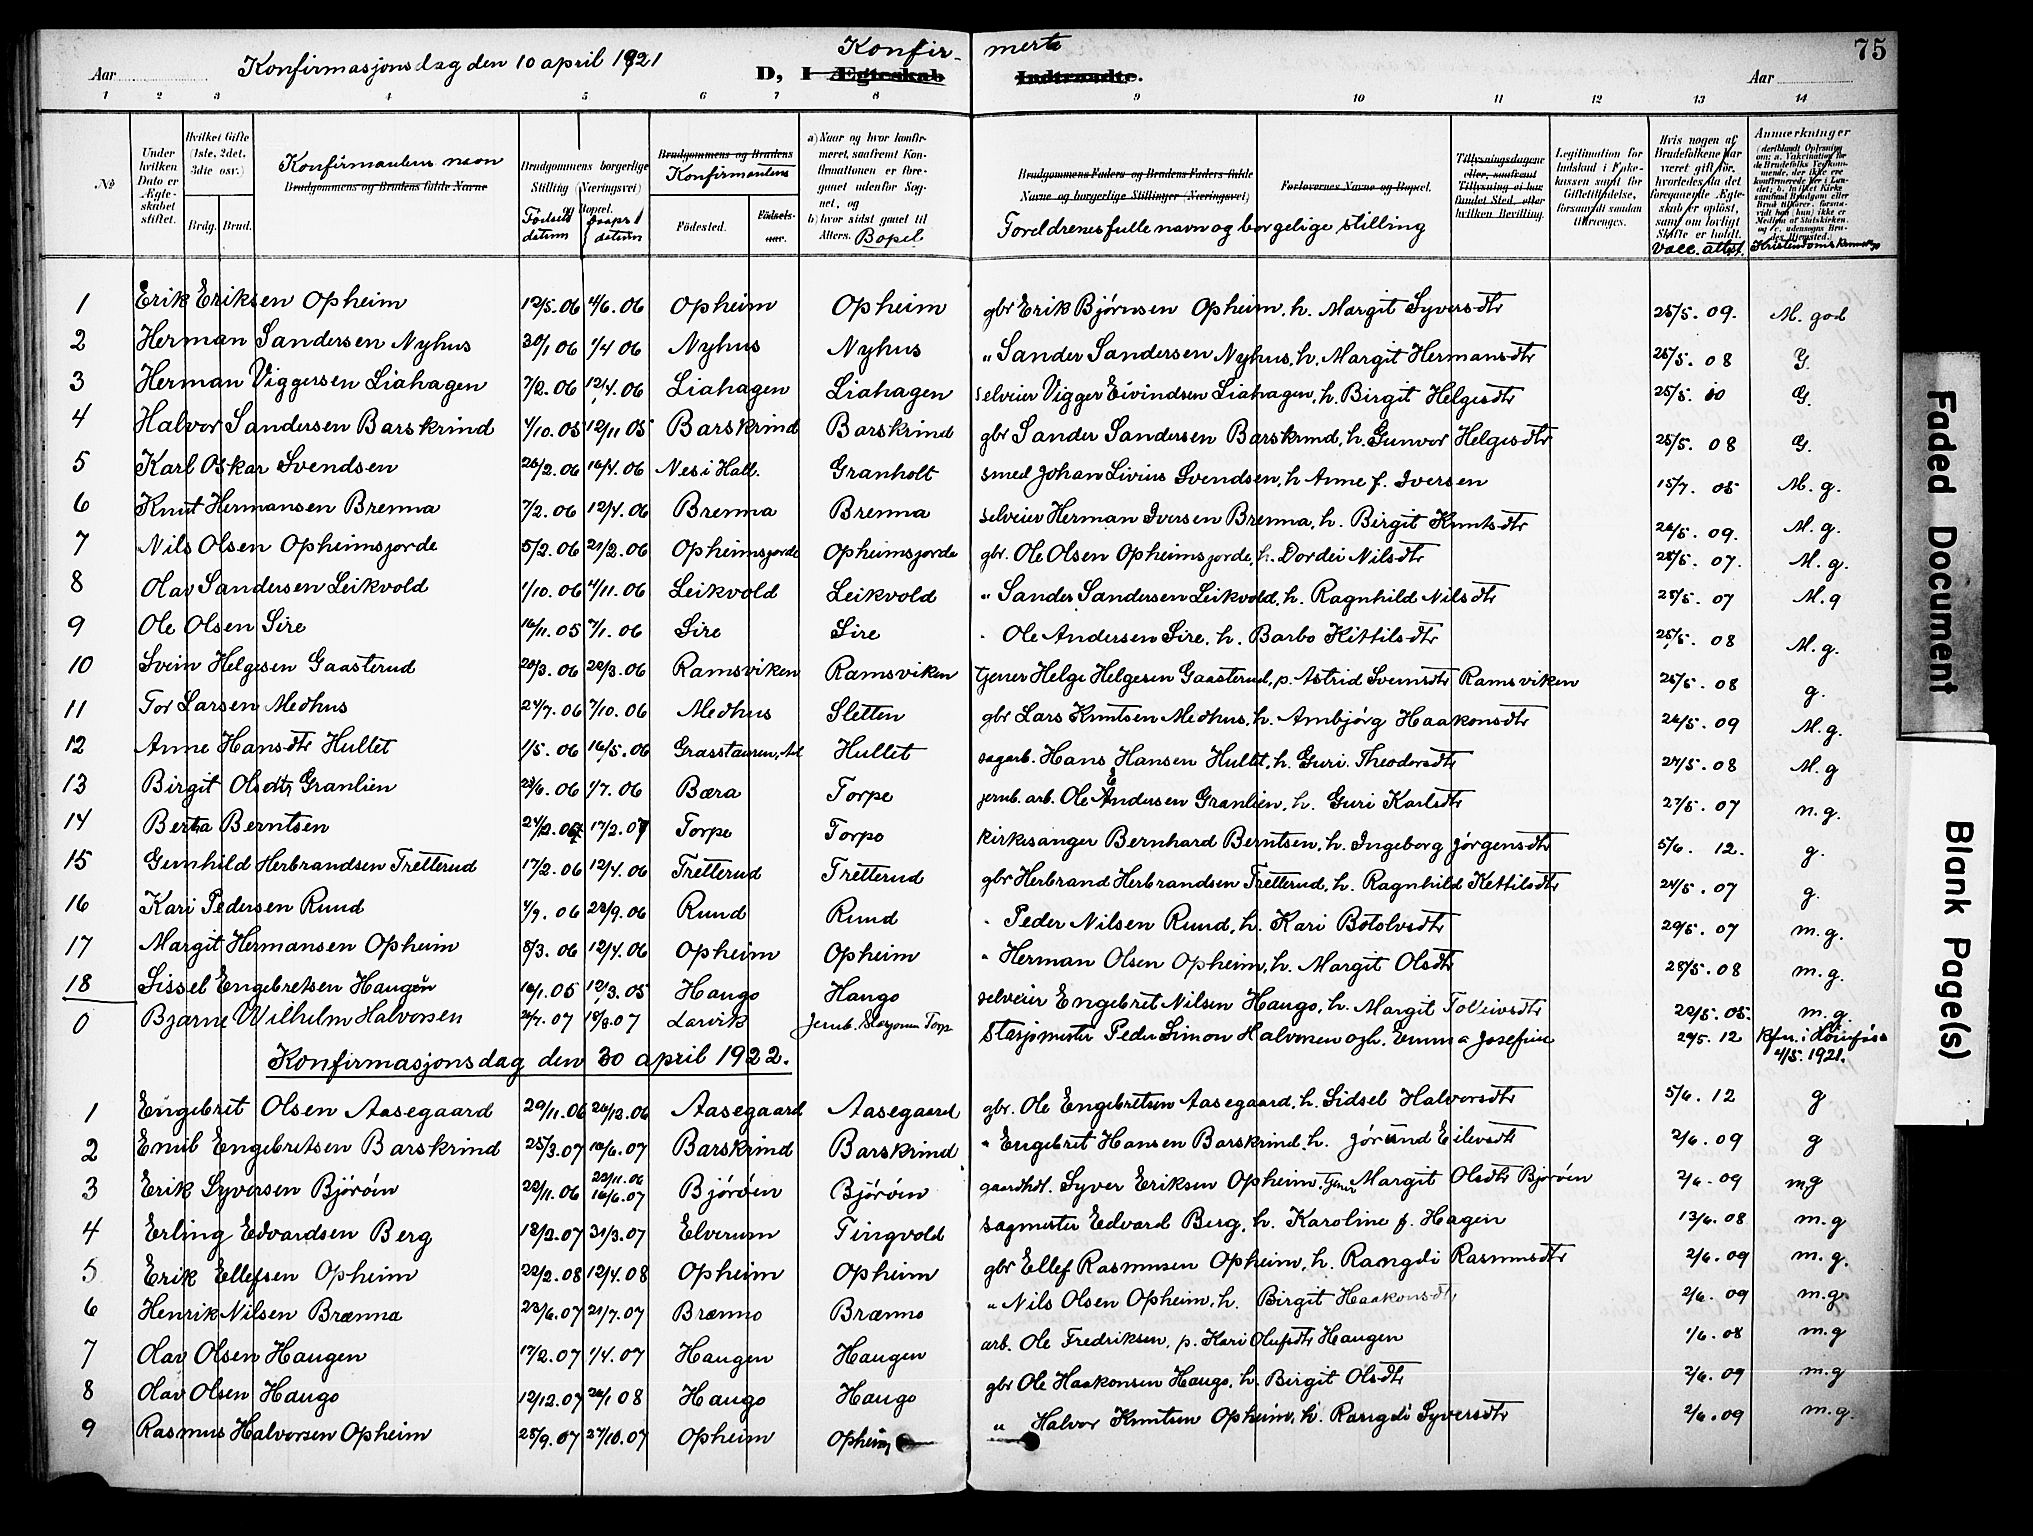 Konfirmasjonsdag den 10 april 1921
Konfir- merte
75
Aar
D, I Ægteskab Indtraadte.
Aar
1 2 3 4 5 6 7 8 9 10 11 12 13 14
№
Under hvilken Dato er Ægteskabet stiftet.
Hvilket Gifte (1ste, 2det, 3die osv.)
Brdg. Brud.
Konfirmantens navn
Brudgommens og Brudens fulde Navne
Brudgommens borgerlige Stilling (Næringsvei) og Bopæl.
Fødsels datum
Daaps datum
Brudgommens og Brudens
Konfirmantens
Fødested.
Fødselsaar.
a) Naar og hvor konfirmeret, saafremt Konfirmationen er foregaaet udenfor Sognet, og
b) hvor sidst gaaet til Alters. Bopel
Brudgommens Faders og Brudens Faders fulde Navne og borgerlige Stillinger (Næringsvei)
Foreldrenes fulle navn og borgelige stilling
Forlovernes Navne og Bopæl.
Tillysningsdagene eller, saafremt Tillysning ei har fundet Sted, efter hvilken Bevilling.
Legitimation for Indskud i Enkekassen samt for Giftetilladelse, forsaavidt saadan tiltrænges.
Hvis nogen af Brudefolkene har været gift før, hvorledes da det foregaaende Ægteskab er opløst, samt om lovligt Skifte er holdt.
Vacc. attest.
Anmerkninger
1 Erik Eriksen Opheim 12/5.06 4/6.06 Opheim Opheim gbr Erik Bjørnsen Opheim, h. Margit Syversdtr 25/5.09. M. god
2 Herman Sandersen Nyhus 30/1 06 1/4 06 Nyhus Nyhus " Sander Sandersen Nyhus, h. Margit Hermansdtr 25/5.08 G.
3 Herman Viggersen Liahagen 7/2.06 12/4.06 Liahagen Liahagen selveier Vigger Eivindsen Liahagen, h. Birgit Helgesdtr 25/5.10 G.
4 Halvor Sandersen Barskrind 4/10.05 12/11 05 Barskrind Barskrind gbr Sander Sandersen Barskrind, h. Gunvor Helgesdtr 25/5.08 G.
5 Karl Oskar Svendsen 26/2.06 16/4.06 Nes i Hall. Granholt smed Johan Livius Svendsen, h Anne f. Iversen 15/7.05 M. g.
6 Knut Hermansen Brenna 7/2.06 12/4.06 Brenna Brenna selveier Herman Iversen Brenna, h. Birgit Knutsdtr 26/5.09. M. g.
7 Nils Olsen Opheimsjorde 5/2.06 21/2.06 Opheimsjorde Opheimsjorde gbr. Ole Olsen Opheimsjorde, h. Dordei Nilsdtr 25/5.07. M. g.
8 Olav Sandersen Leikvold 1/10.06 4/11.06 Leikvold Leikvold " Sander Sandersen Leikvold, h. Ragnhild Nilsdtr 25/5.07 M. g
9 Ole Olsen Sire 16/11.05 7/1.06 Sire Sire " Ole Andersen Sire, h. Barbo Kittilsdtr 25/5.08 M. g.
10 Svein Helgesen Gaasterud 20/3.06 22/3.06 Ramsviken Ramsviken tjener Helge Helgesen Gaasterud, p. Astrid Sveinsdtr Ramsviken 25/5.08 g.
11 Tor Larsen Medhus 24/7.06 7/10.06 Medhus Sletten gbr Lars Knutsen Medhus, h. Ambjørg Haakonsdtr 26/5.09 M. g.
12 Anne Hansdtr Hullet 1/5.06 16/5.06 Hullet sagarb. Hans Hansen Hullet, h. Guri Theodorsdtr 27/5.08 M. g
13 Birgit Olsdtr Granlien 23/6.06 1/7.06 Bæra Torpe jernb. arb. Ole E Andersen Granlien, h. Guri Karlsdtr 27/5.07 n. g.
14 Berta Berntsen 24/2.07 17/2.07 Torpe Torpo kirkesanger Bernhard Berntsen, h. Ingeborg Jørgensdtr 5/6.12. g.
15 Gunhild Herbrandsen Tretterud 17/2.06 12/4.06 Tretterud Tretterud gbr Herbrand Herbrandsen Tretterud, h. Ragnhild Kettilsdtr 24/5.07 g.
16 Kari Pedersen Ruud 4/9.06 23/9.06 Ruud Ruud " Peder Nilsen Ruud, h. Kari Botolvsdtr 29/5.07 m. g.
17 Margit Hermansen Opheim 8/3.06 12/4.06 Opheim Opheim " Herman Olsen Opheim, h. Margit Olsdtr 28/5.08 m. g.
18 Sissel Engebretsen Haugen 16/1.05 12/3.05 Haugo Haugo selveier Engebret Nilsen Haugo, h. Margit Tolleivsdtr 22/5.05. m. g.
0 Bjarne Wilhelm Halvorsen 24/7.07 18/8.07 Larvik Jernb. Stasjonen Torp Stasjonmester Peder Simon Halvorsen og h. Emma Josefine 29/5.12 Kfm. i Hønefoss 4/5.1921.
Konfirmasjonsdag den 30 april 1922.
1 Engebret Olsen Aasegaard 29/11.06 26/12.06 Aasegaard Aasegaard gbr. Ole Engebretsen Aasegaard, h. Sidsel Halvorsdtr 5/6.12 g
2 Emil Engebretsen Barskrind 25/3.07 10/6.07 Barskrind Barskrind " Engebret Hansen Barskrind, h. Jørund Eilevsdtr 2/6.09 g
3 Erik Syversen Bjøröin 22/11.06 22/11.06 16/6.07 Bjøröin Bjøröin gaardbst. Syver Eriksen Opheim, tjener Margit Olsdtr Bjøröin 2/6.09 mg
4 Erling Edvardsen Berg 18/2.07 31/3.07 Elverum Tingvold sagmester Edvard Berg, h. Karoline f. Hagen 13/6.08 m. g
5 Erik Ellefsen Opheim 22/2.08 12/4.08 Opheim Opheim gbr Ellef Rasmusen Opheim, h. Rangdi Rasmusdtr 2/6.09 m. g.
6 Henrik Nilsen Brænna 23/6.07 21/7.07 Brænno Brænno " Nils Olsen Opheim, h. Birgit Haakonsdtr 2/6.09 m. g.
7 Olav Olsen Haugen 17/2.07 1/4.07 Haugen Haugen arb. Ole Fredriksen, p. Kari Olufsdtr Haugen 1/6.08 m. g
8 Olav Olsen Haugo 12/12.07 26/1 08 Haugo Haugo gbr Ole Haakonsen Haugo, h. Birgit Olsdtr 2/6.09 m. g
9 Rasmus Halvorsen Opheim 25/9.07 27/10.07 Opheim Opheim " Halvor Knutsen Opheim, h. Rangdi Syversdtr 2/6.09 m. g.
Faded Document
Blank Page(s)